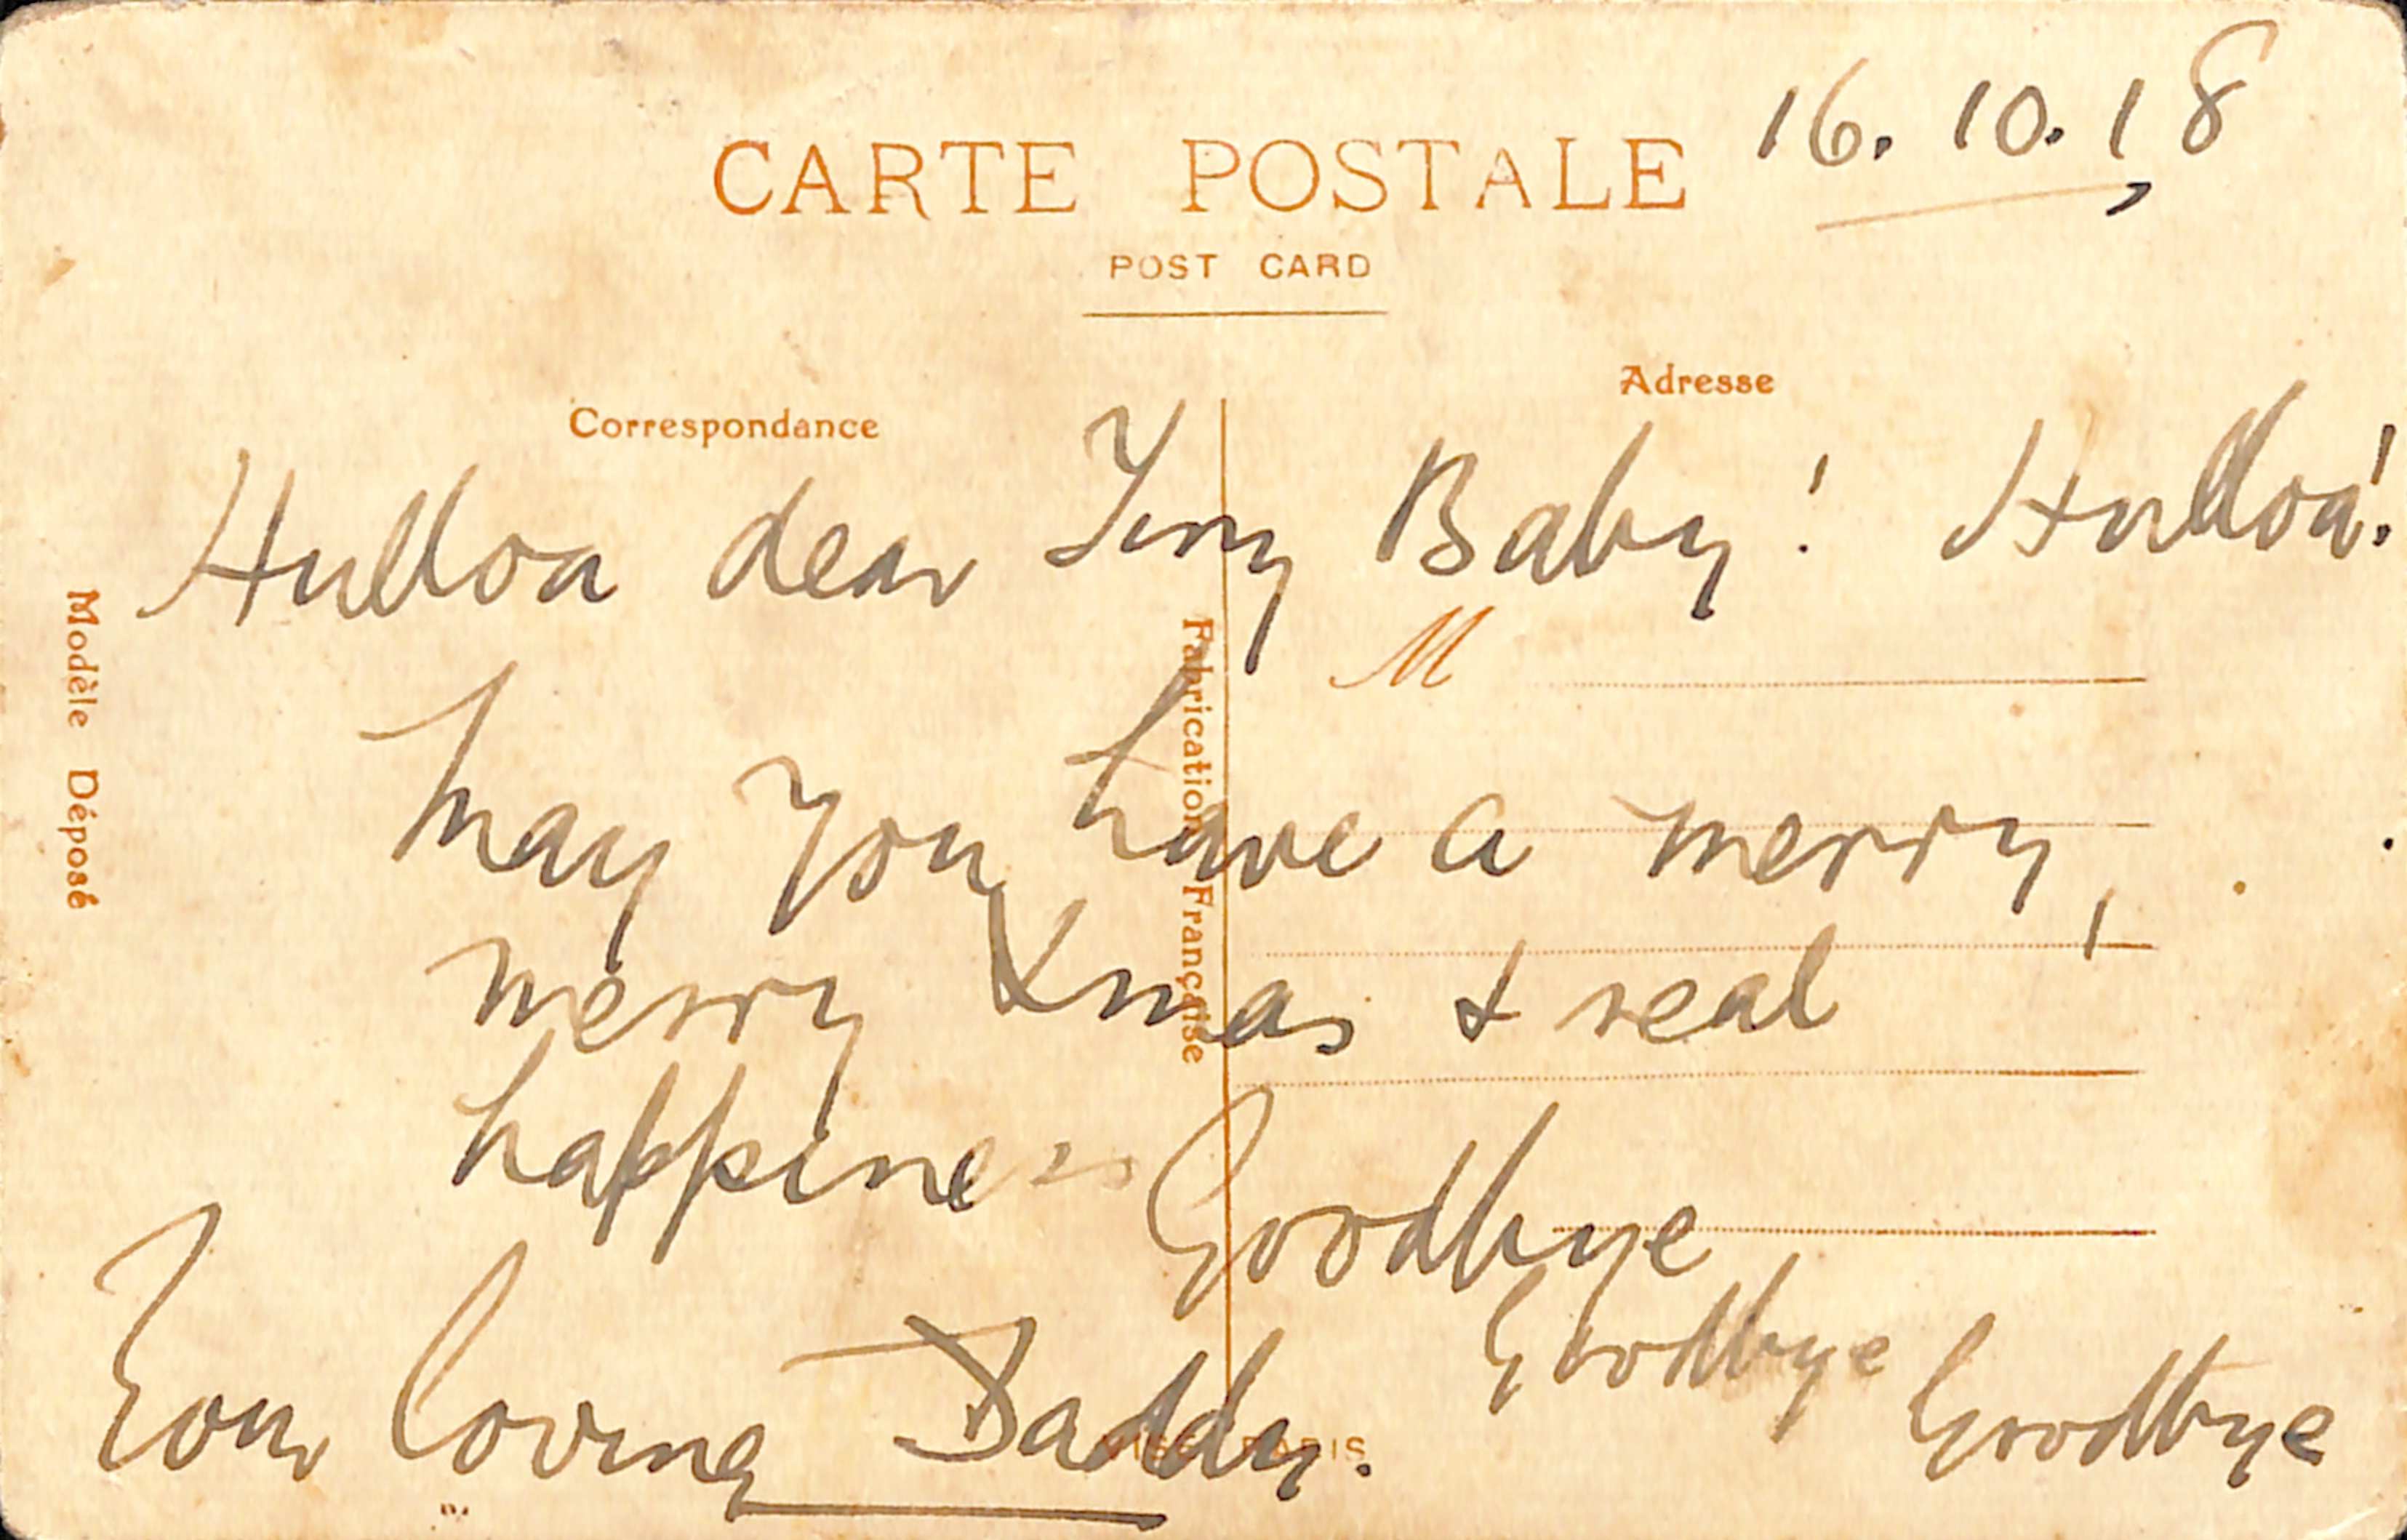 16. 10. 18
CARTE POSTALE
POST CARD
Correspondance
Adresse
Hulloa dear Tiny Baby! Hulloa!
M
May you have a merry,
merry Xmas & real
happiness
Goodbye
Goodbye
Goodbye
Your loving Daddy.
Modèle Déposé
Fabrication Française
PARIS